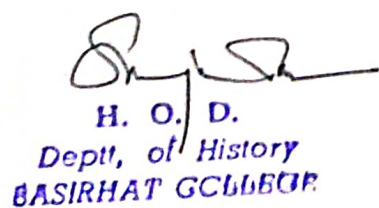 H. O. D.
Deptt, of History
BASIRHAT COLLEGE